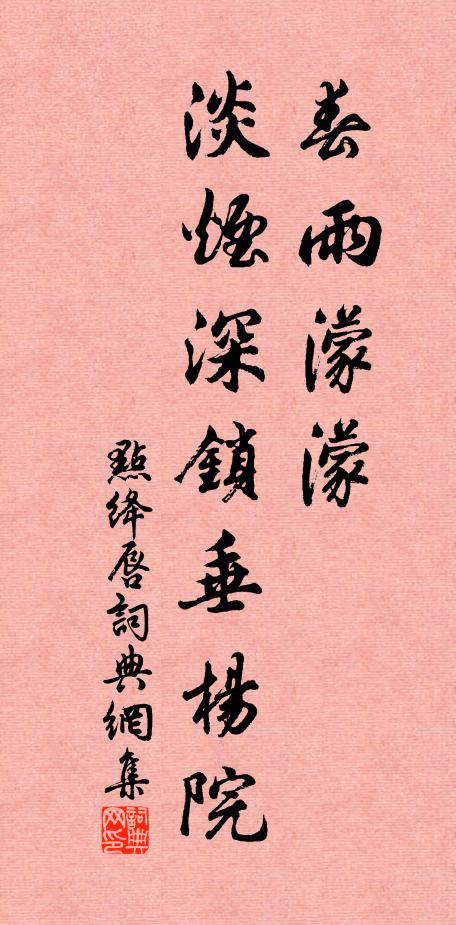 春雨濛濛
淡煙深鎖垂楊院
點絳唇詞典網集
詞典网印